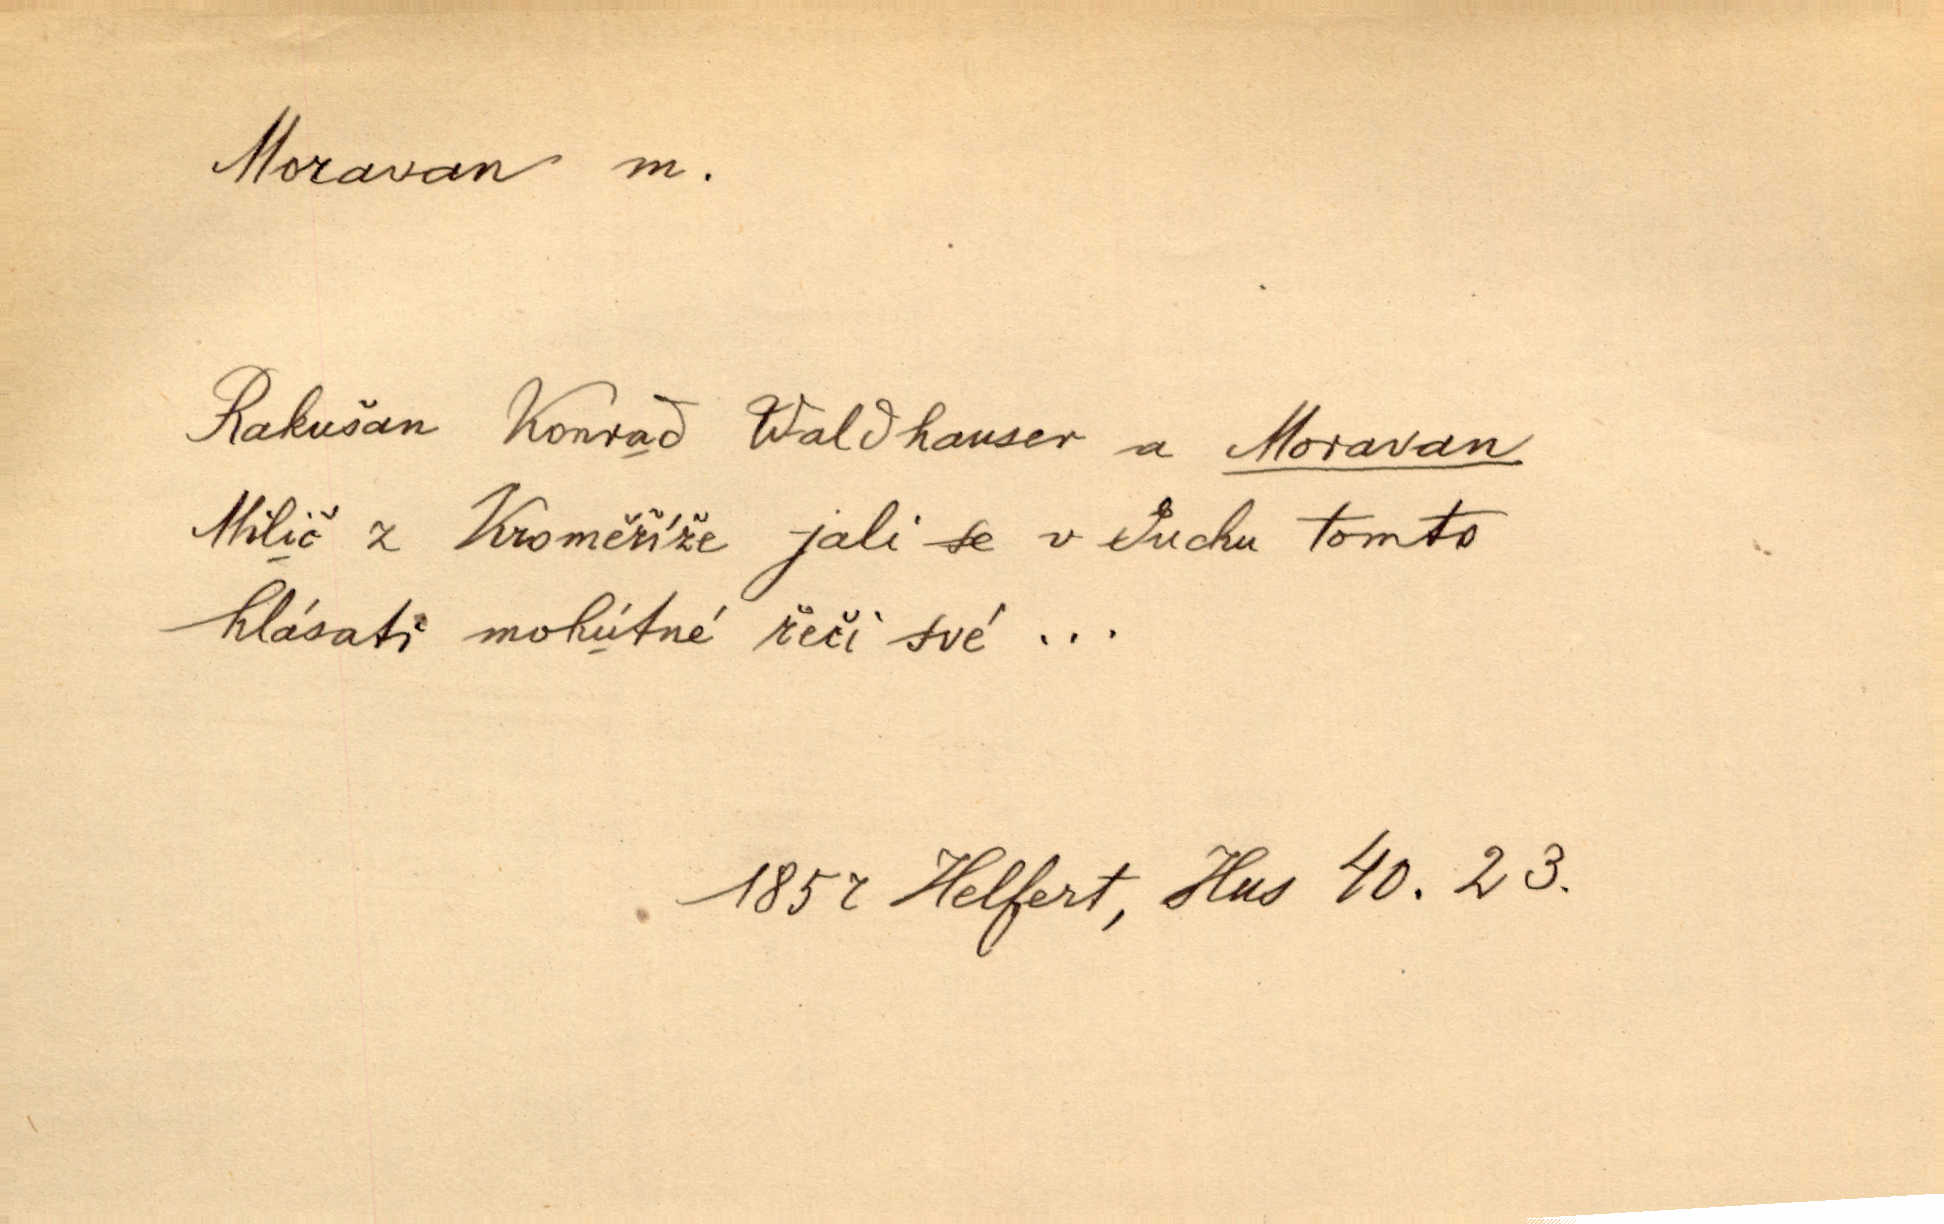 Moravan m.
Rakušan Konrad Waldhauser a Moravan
Milič z Kroměříže jali se v duchu tomto
hlásati mohútné řeči své ...
1857 Helfert, Hus 40. 23.